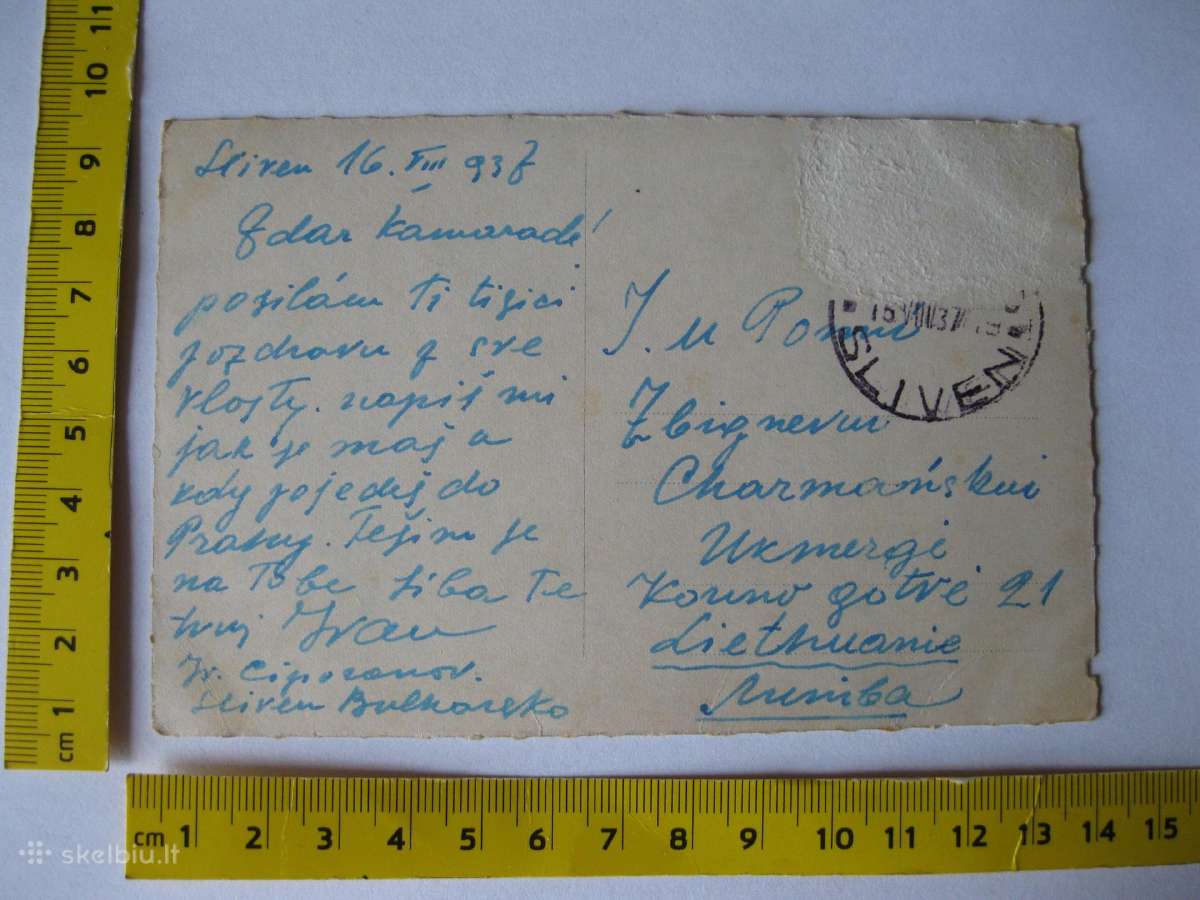 Sliven 16. VIII 937
Zdar Kamarade!
posilám Ti tisici
pozdravu z sve
vlasty. napiš mi
jak je maš a
kdy pojediš do
Prahy. Tešim se
na Tebe Liba Te
tvuj Ivan
Iv. Ciporanov.
Sliven Bulharsko
J. W Panu
Zbignevui
Charmańskui
Ukmergė
Kauno gatvė 21
Liethuanie
Литва
16 VIII 37
SLIVEN
cm 1 2 3 4 5 6 7 8 9 10 11
cm 1 2 3 4 5 6 7 8 9 10 11 12 13 14 15
skelbiu.lt